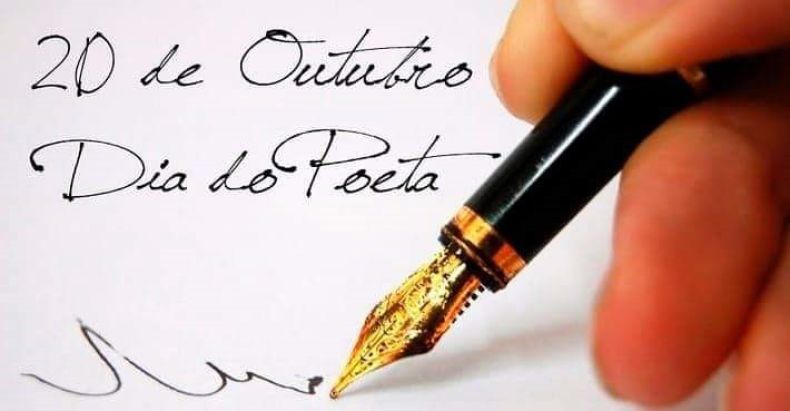 20 de Outubro
Dia do Poeta